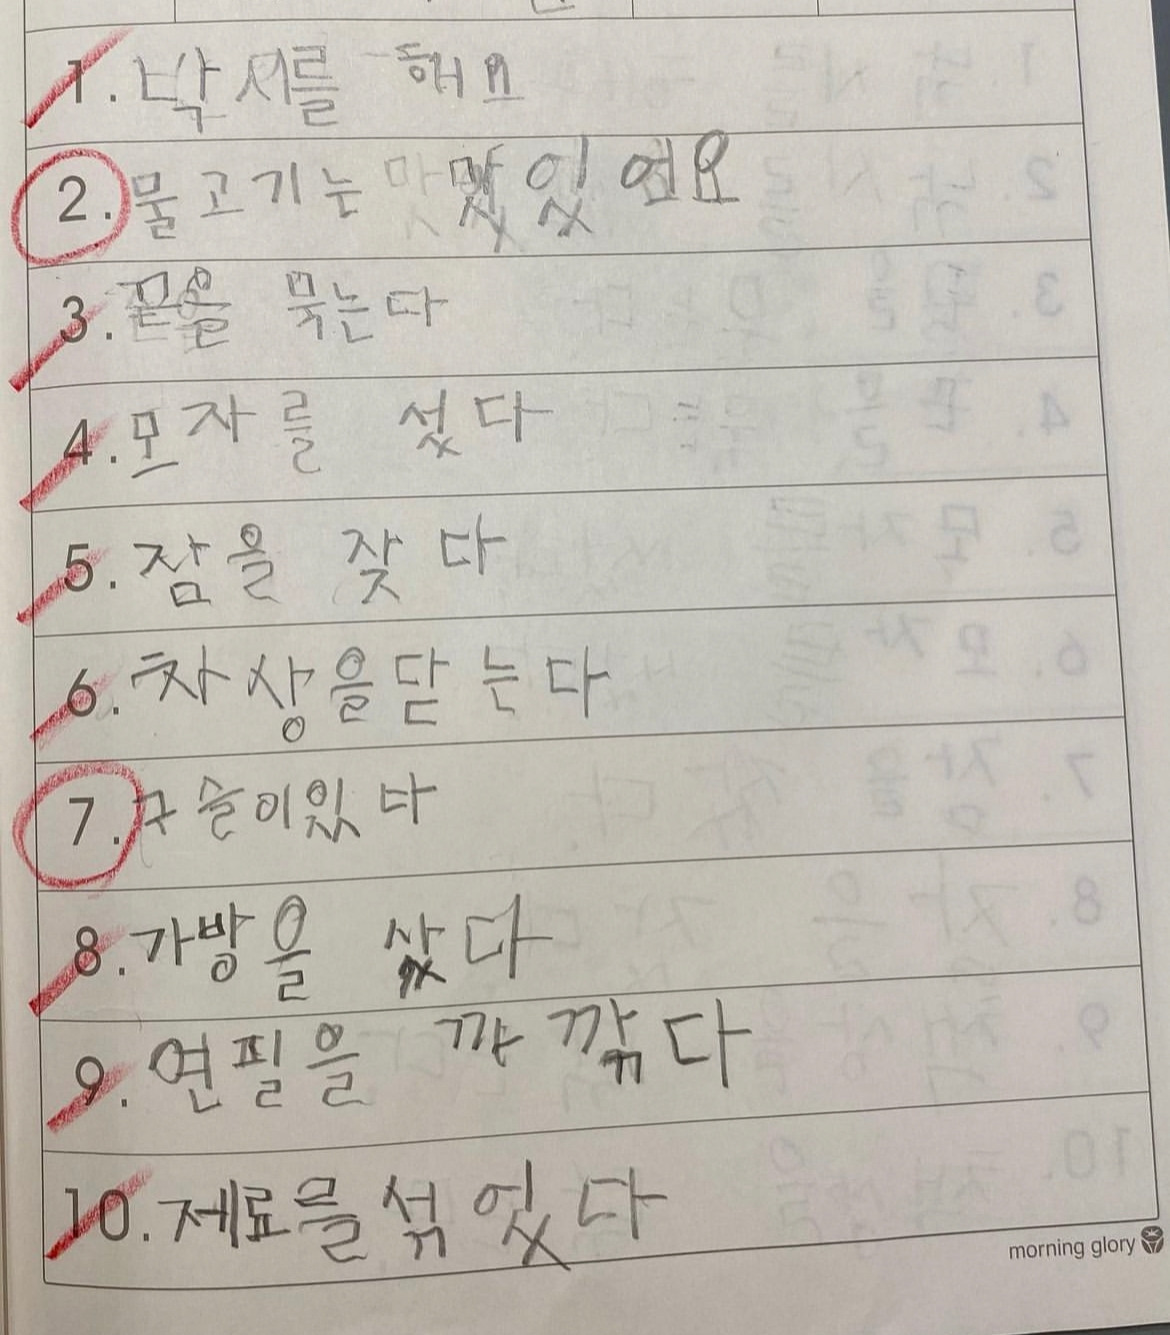 1. 낙서를 해요
2. 물고기는 맛 맜있 어요
3. 끈을 묶는다
4. 모자를 섰다
5. 잠을 잦다
6. 차상을닫는다
7. 구슬이있다
8. 가방을 샀다
9. 연필을 까 깎다
10. 제료를 섞엇다
morning glory